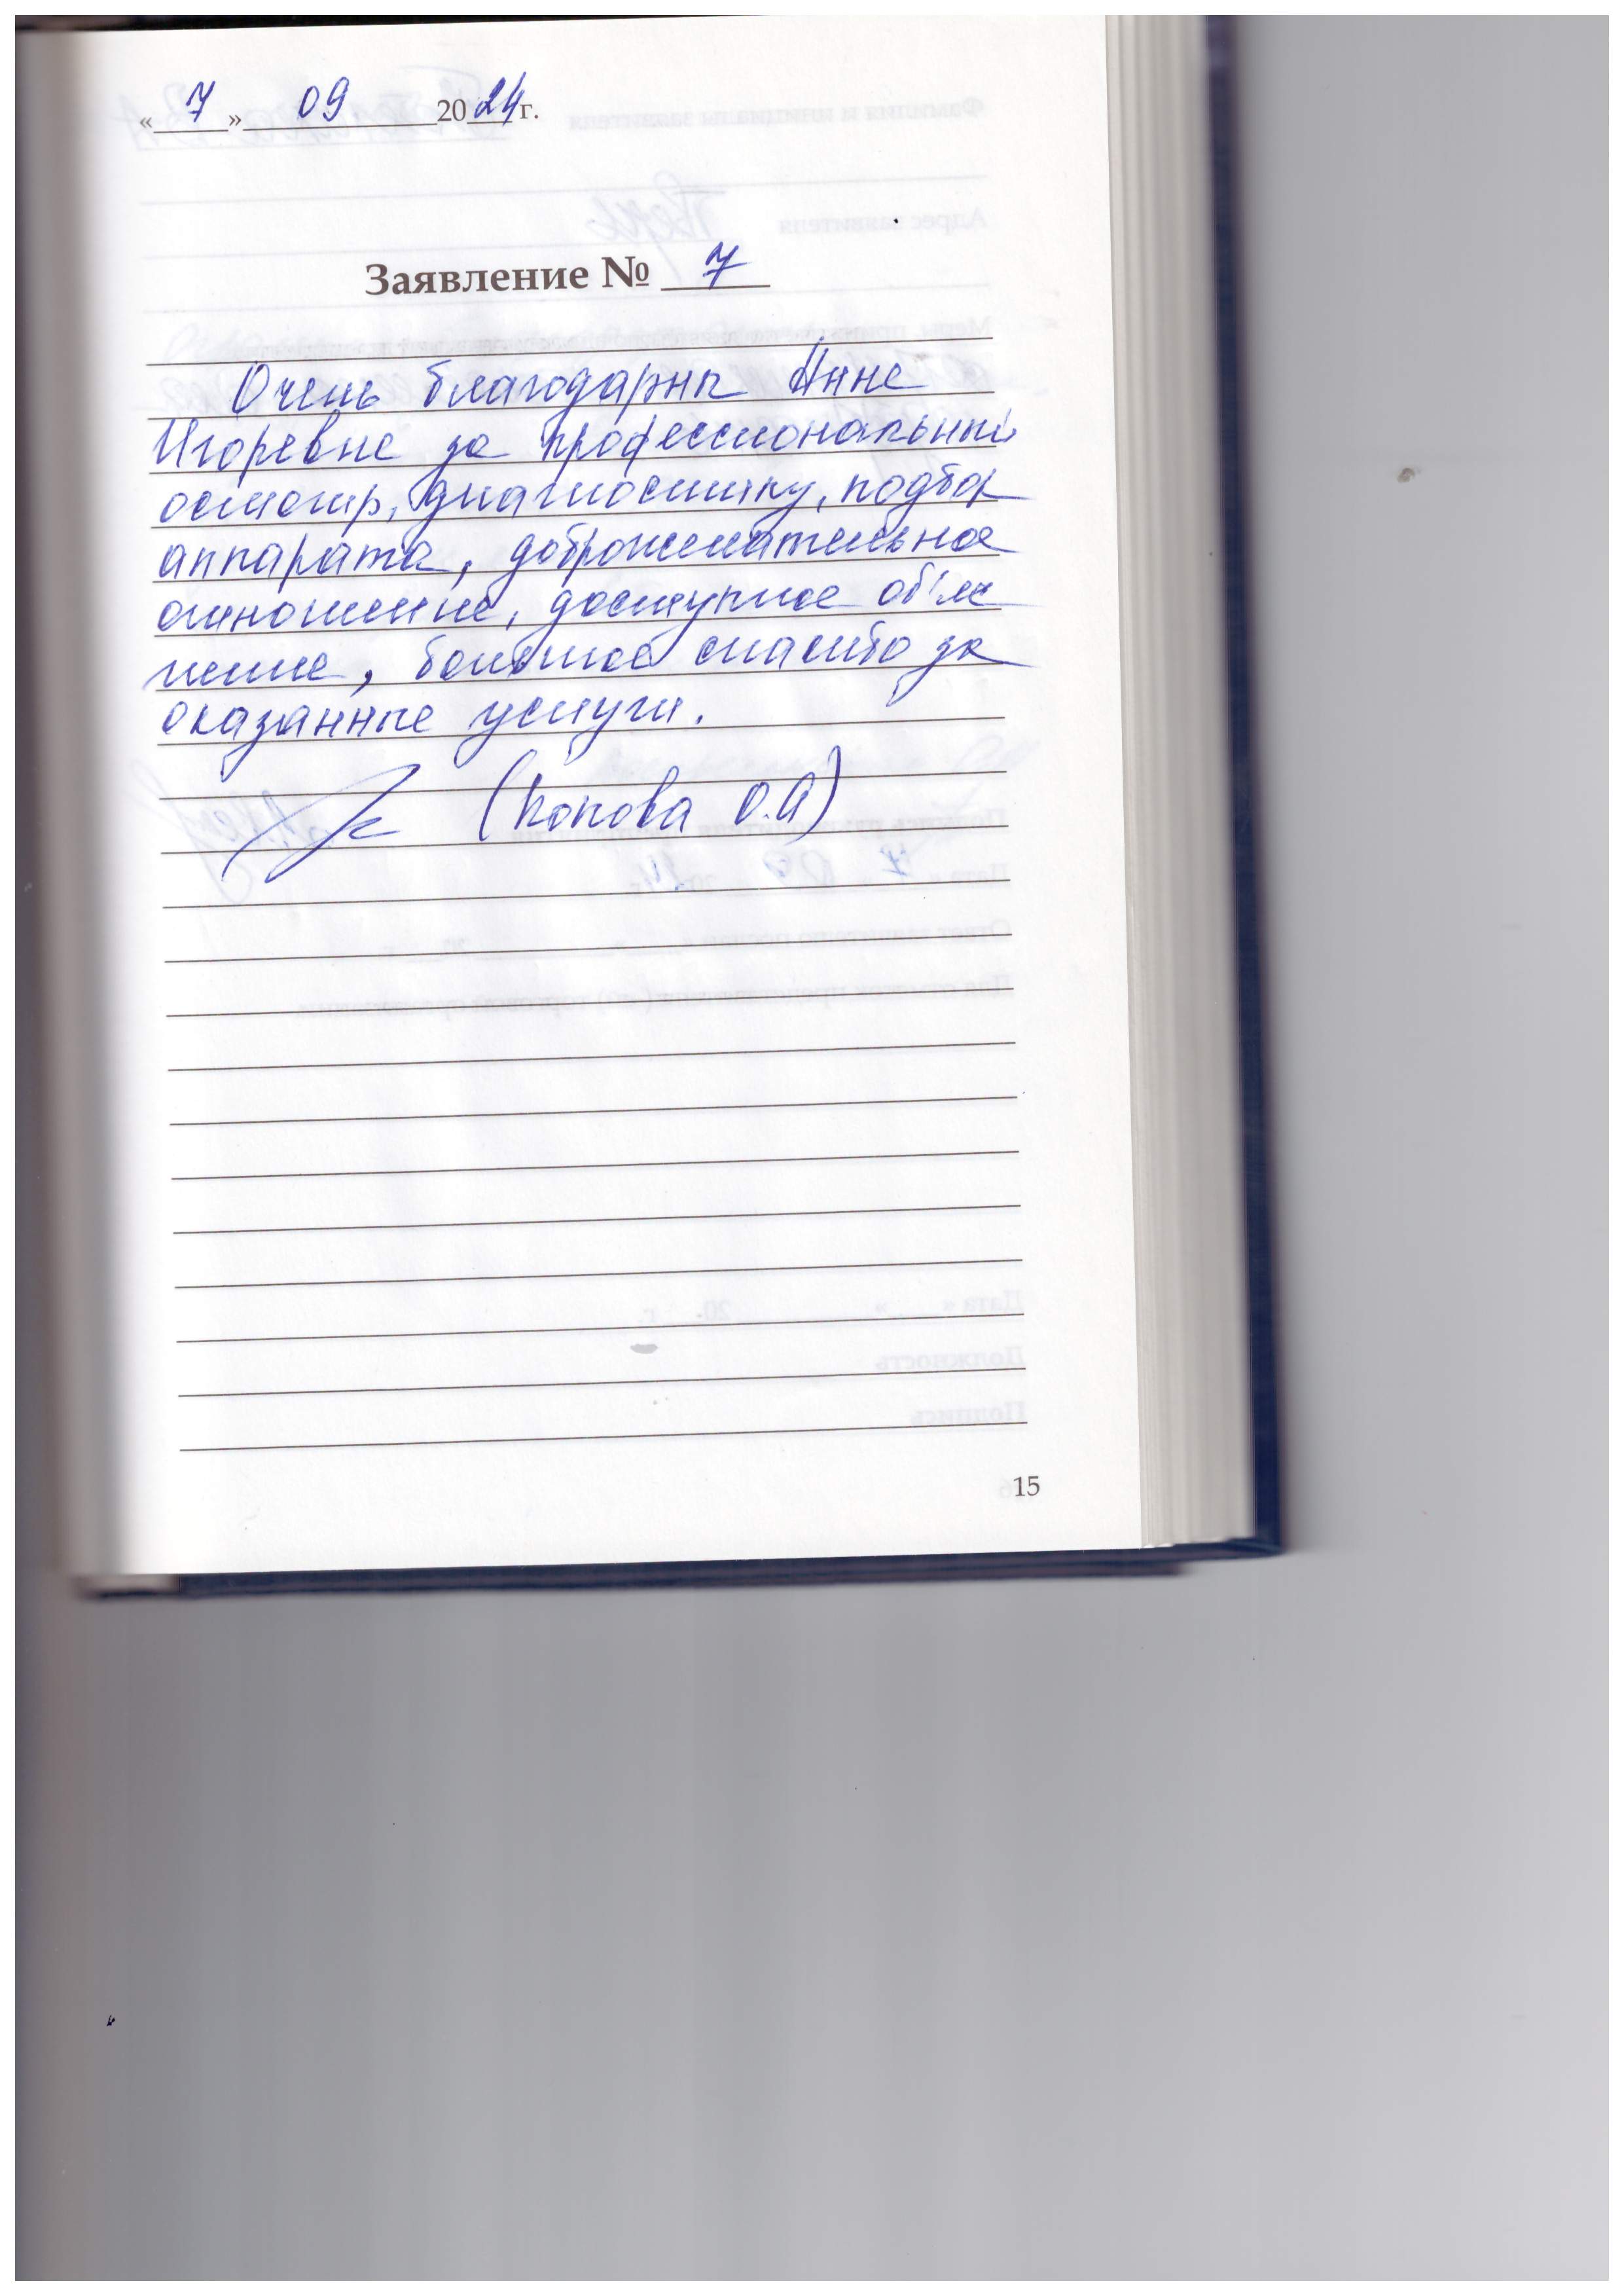 «7» 09 2024 г.
Заявление № 7
Очень благодарны Анне
Игоревне за профессиональный
осмотр, диагностику, подбор
аппарата, доброжелательное
отношение, доступное объяс
нение, большое спасибо за
оказанные услуги.
(Попова О.А)
15